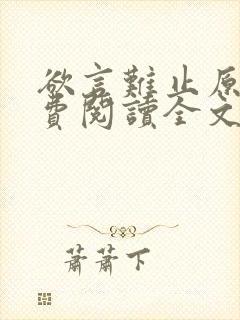 欲言難止原
費閱讀全文
蕭蕭下